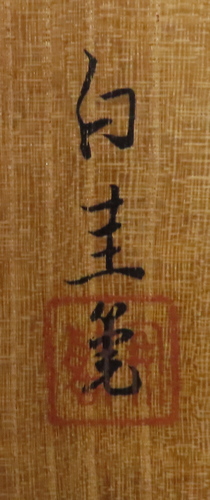 白圭筆